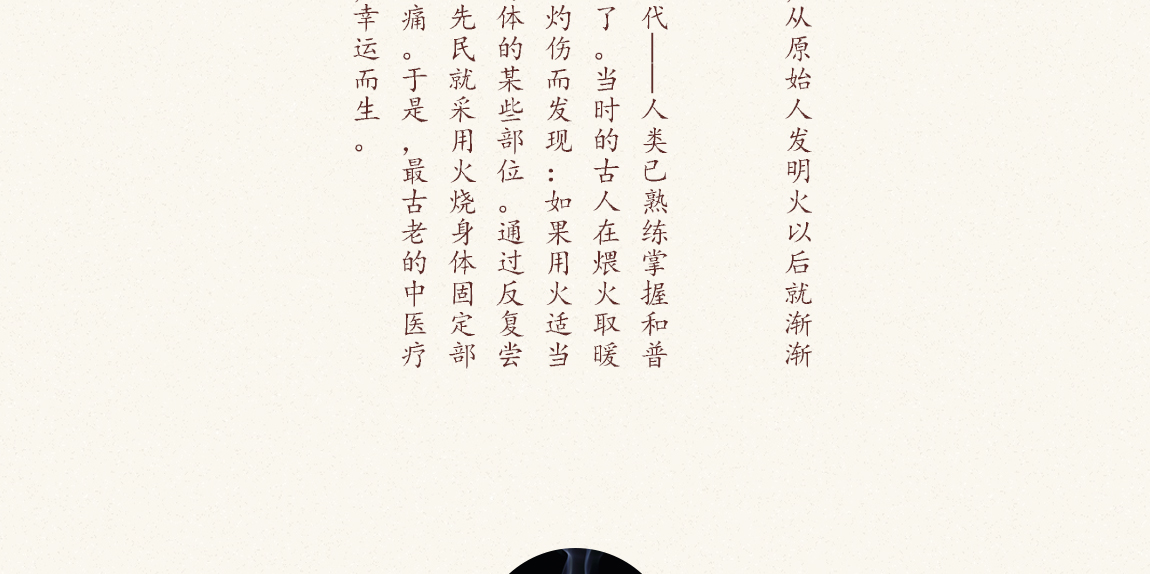 从原始人发明火以后就渐渐
代——人类已熟练掌握和普
了。当时的古人在煨火取暖
灼伤而发现:如果用火适当
体的某些部位。通过反复尝
先民就采用火烧身体固定部
痛。于是,最古老的中医疗
幸运而生。